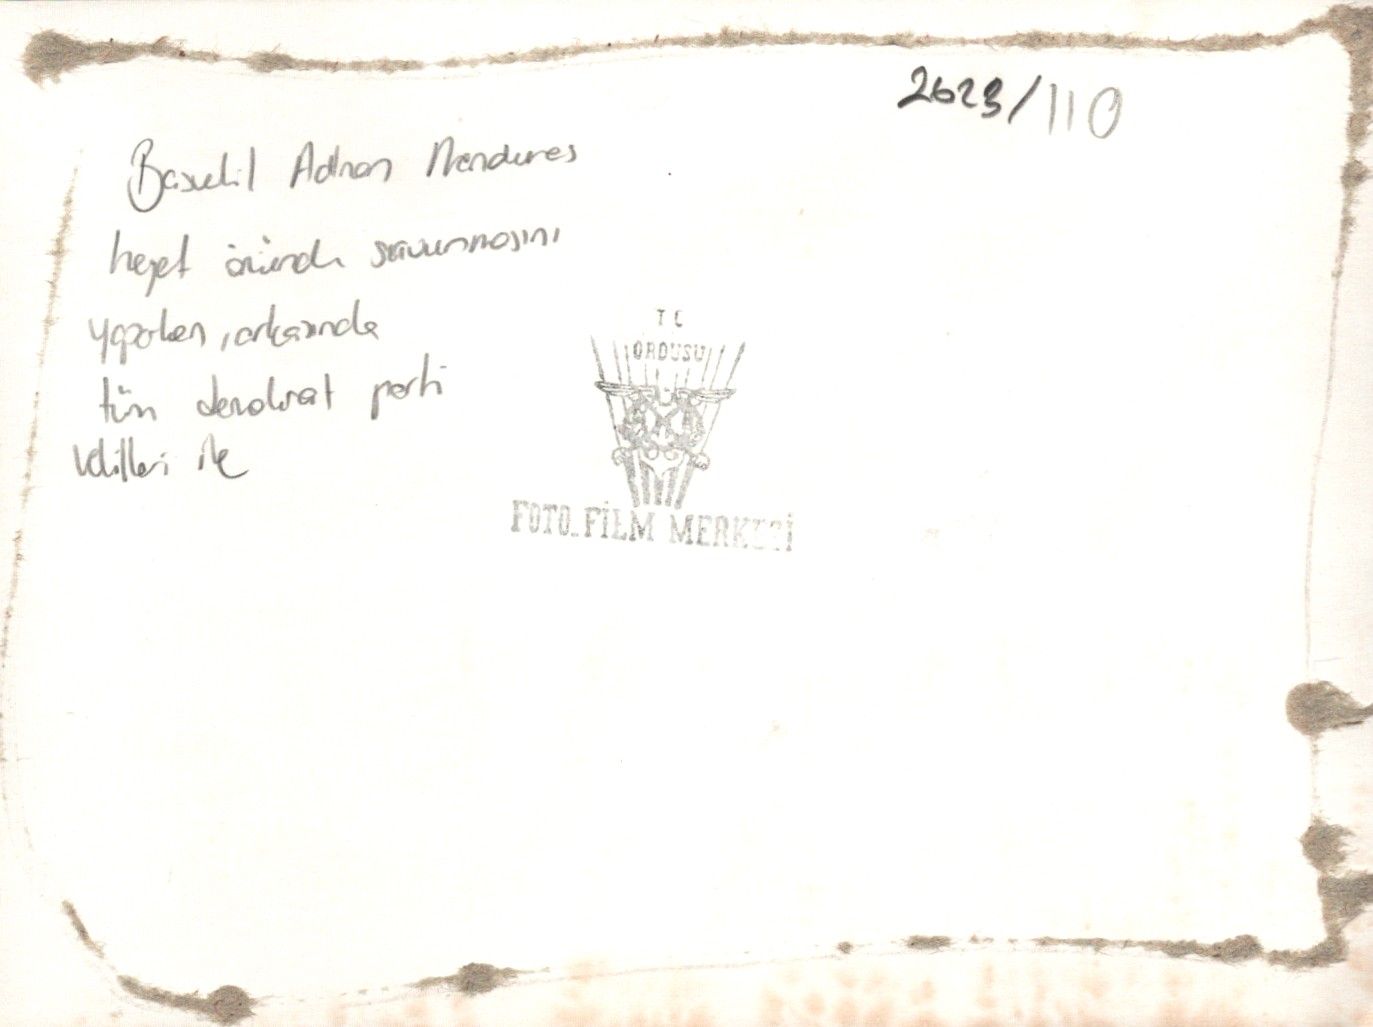 2623/110
Başvekil Adnan Menderes
heyet önünde savunmasını
yaparken, arkasında
tüm demokrat parti
Vekilleri ile
T C
ORDUSU
FOTO-FİLM MERKEZİ